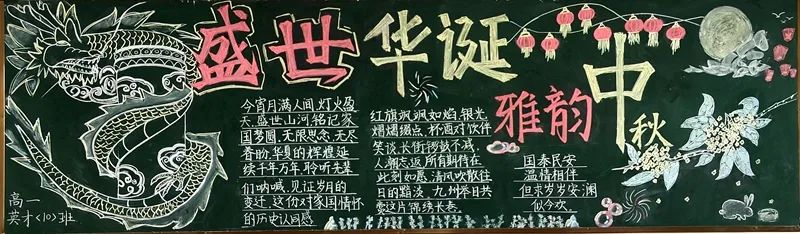 盛世华诞
雅韵中秋
今宵月满人间,灯火盈
天,盛世山河铭记家
国梦圆,无限思念,无尽
眷盼,华夏的辉煌延
续千年万年,聆听先辈
们呐喊,见证岁月的
变迁,这份对家国情怀
的历史认同感
红旗飒飒如焰,银光
熠熠缀点,杯酒对饮伴
笑谈,长街锣鼓不减,
人潮忘返,所有期待在
此刻如愿,清风吹散往
日的黯淡,九州举目共
赏这片锦绣长卷。
国泰民安
温情相伴
但求岁岁安澜
似今欢
高一
英才(10)班